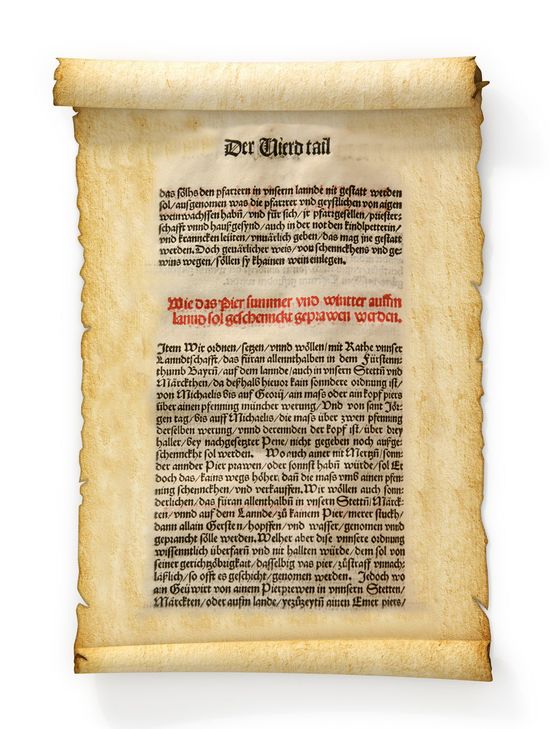 Der Vierd tail
das sölhs den pfarrern in vnserm lannde nit gestatt werden
sol/ausgenomen was die pfarrer vnd geystlichen von aigen
weinwachssen habñ/vnd für sich/jr pfarrgesellen/priester-
schafft vnnd haußgesynd/auch in der not den kindlpetterin/
vnd kranncken leüten/vnuärlich geben/das mag jne gestatt
werden. Doch geuärlicher weis/von schennckhens vnd ge-
wins wegen/söllen sy khainen wein einlegen.
Wie das Pier summer vnd winter auffm
lannd sol geschenckt vnd geprawen werden.
Item Wir ordnen/setzen/vnnd wöllen/mit Rathe vnnser
Lanndtschafft/das füran allennthalben in dem Fürstenn-
thumb Bayrñ/auf dem lannde/auch in vnsern Stettñ vnd
Märckthen/da deßhalb hieuor kain sonndere ordnung ist/
von Michaelis bis auf Georij/ain maß oder ain kopf piers
über ainen pfenning müncher werung/Vnd von sant Jör-
gen tag/bis auff Michaelis/die maß über zwen pfenning
derselben werung/vnnd derennden der kopf ist/über drey
haller/bey nachgesetzter Pene/nicht gegeben noch außge-
schennckht sol werden. Wo auch ainer nit Mertzñ/sonn-
der annder Pier prawen/oder sonnst habñ würde/sol Er
doch das/kains wegs höher/dañ die maß vmb ainen pfen-
ning schennckhen/vnd verkauffen. Wir wöllen auch sonn-
derlichen/das füran allenthalbñ in vnsern Stettñ Märck-
ten/vnnd auf dem Lannde/zu kainem Pier/merer stuckh/
dann allain Gersten/hopffen/vnd wasser/genomen vnnd
gepraucht sölle werden. Welher aber dise vnnsere ordnung
wissenntlich überfarñ vnd nit hallten würde/dem sol von
seiner gerichtzöbrigkait/dasselbig vas pier/zůstraff vnnach-
läßlich/so offt es geschicht/genomen werden. Jedoch wo
ain Geüwirt von ainem Pierprewen in vnnsern Stetten/
Märckten/oder aufm lande/yezůzeytñ ainen Emer piers/